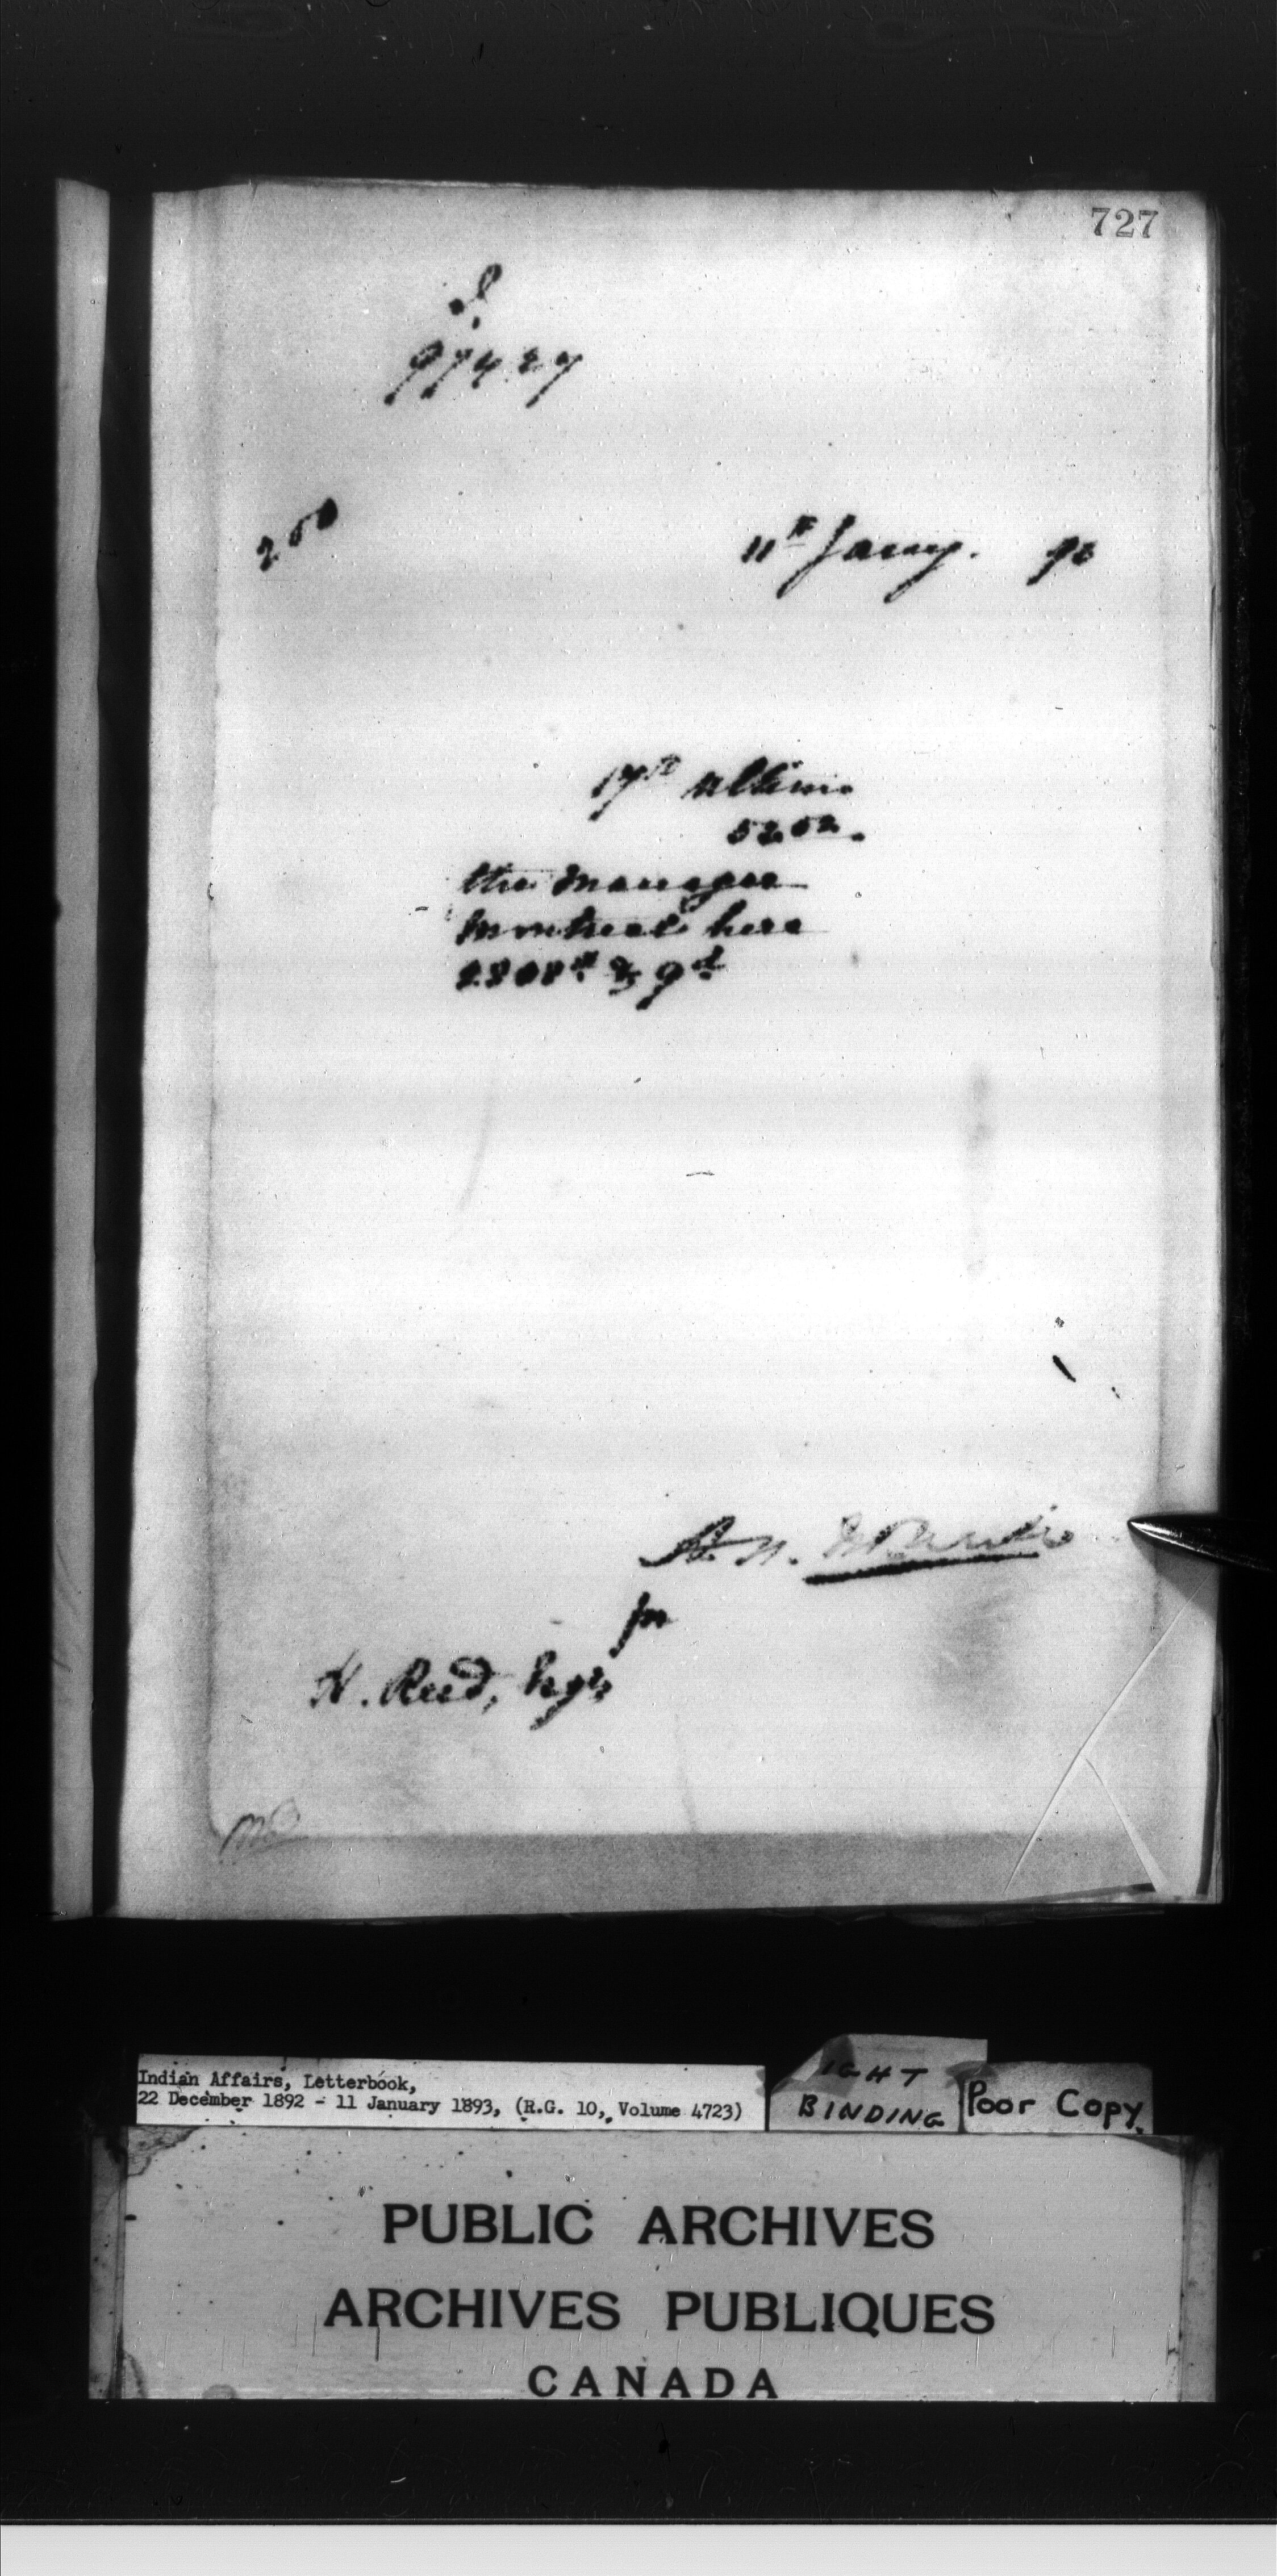 727
97427
200
11th Jany. 93
17th Ultimo
5252.
the Manager
Montreal here
for
H. Reed, Esq,
Indian Affairs, Letterbook,
22 December 1892 - 11 January 1893, (R.G. 10, Volume 4723)
IGHT
BINDING
Poor Copy.
PUBLIC ARCHIVES
ARCHIVES PUBLIQUES
CANADA